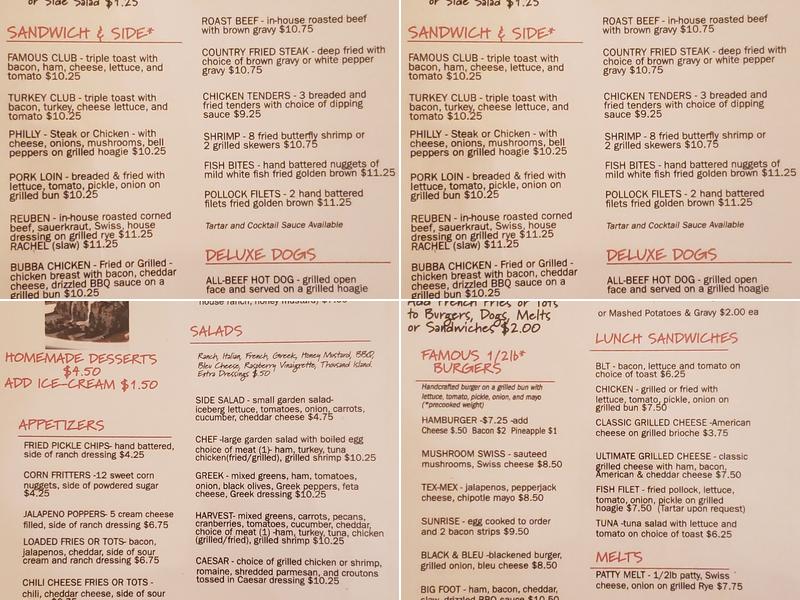 or Side Salad $1.25
SANDWICH & SIDE*
FAMOUS CLUB - triple toast with
bacon, ham, cheese, lettuce, and
tomato $10.25
TURKEY CLUB - triple toast with
bacon, turkey, cheese lettuce, and
tomato $10.25
PHILLY - Steak or Chicken - with
cheese, onions, mushrooms, bell
peppers on grilled hoagie $10.25
PORK LOIN - breaded & fried with
lettuce, tomato, pickle, onion on
grilled bun $10.25
REUBEN - in-house roasted corned
beef, sauerkraut, Swiss, house
dressing on grilled rye $11.25
RACHEL (slaw) $11.25
BUBBA CHICKEN - Fried or Grilled -
chicken breast with bacon, cheddar
cheese, drizzled BBQ sauce on a
grilled bun $10.25
ROAST BEEF - in-house roasted beef
with brown gravy $10.75
COUNTRY FRIED STEAK - deep fried with
choice of brown gravy or white pepper
gravy $10.75
CHICKEN TENDERS - 3 breaded and
fried tenders with choice of dipping
sauce $9.25
SHRIMP - 8 fried butterfly shrimp or
2 grilled skewers $10.75
FISH BITES - hand battered nuggets of
mild white fish fried golden brown $11.25
POLLOCK FILETS - 2 hand battered
filets fried golden brown $11.25
Tartar and Cocktail Sauce Available
DELUXE DOGS
ALL-BEEF HOT DOG - grilled open
face and served on a grilled hoagie
or Side Salad $1.25
SANDWICH & SIDE*
FAMOUS CLUB - triple toast with
bacon, ham, cheese, lettuce, and
tomato $10.25
TURKEY CLUB - triple toast with
bacon, turkey, cheese lettuce, and
tomato $10.25
PHILLY - Steak or Chicken - with
cheese, onions, mushrooms, bell
peppers on grilled hoagie $10.25
PORK LOIN - breaded & fried with
lettuce, tomato, pickle, onion on
grilled bun $10.25
REUBEN - in-house roasted corned
beef, sauerkraut, Swiss, house
dressing on grilled rye $11.25
RACHEL (slaw) $11.25
BUBBA CHICKEN - Fried or Grilled -
chicken breast with bacon, cheddar
cheese, drizzled BBQ sauce on a
grilled bun $10.25
ROAST BEEF - in-house roasted beef
with brown gravy $10.75
COUNTRY FRIED STEAK - deep fried with
choice of brown gravy or white pepper
gravy $10.75
CHICKEN TENDERS - 3 breaded and
fried tenders with choice of dipping
sauce $9.25
SHRIMP - 8 fried butterfly shrimp or
2 grilled skewers $10.75
FISH BITES - hand battered nuggets of
mild white fish fried golden brown $11.25
POLLOCK FILETS - 2 hand battered
filets fried golden brown $11.25
Tartar and Cocktail Sauce Available
DELUXE DOGS
ALL-BEEF HOT DOG - grilled open
face and served on a grilled hoagie
HOMEMADE DESSERTS
$4.50
ADD ICE-CREAM $1.50
APPETIZERS
FRIED PICKLE CHIPS- hand battered,
side of ranch dressing $4.25
CORN FRITTERS -12 sweet corn
nuggets, side of powdered sugar
$4.25
JALAPENO POPPERS- 5 cream cheese
filled, side of ranch dressing $6.75
LOADED FRIES OR TOTS- bacon,
jalapenos, cheddar, side of sour
cream and ranch dressing $6.75
CHILI CHEESE FRIES OR TOTS -
chili, cheddar cheese, side of sour
house ranch, honey mustard)
SALADS
Ranch, Italian, French, Greek, Honey Mustard, BBQ,
Bleu Cheese, Raspberry Vinaigrette, Thousand Island.
Extra Dressings $.50
SIDE SALAD - small garden salad-
iceberg lettuce, tomatoes, onion, carrots,
cucumber, cheddar cheese $4.75
CHEF -large garden salad with boiled egg
choice of meat (1)- ham, turkey, tuna
chicken(fried/grilled), grilled shrimp $10.25
GREEK - mixed greens, ham, tomatoes,
onion, black olives, Greek peppers, feta
cheese, Greek dressing $10.25
HARVEST- mixed greens, carrots, pecans,
cranberries, tomatoes, cucumber, cheddar,
choice of meat (1) -ham, turkey, tuna, chicken
(grilled/fried), grilled shrimp $10.25
CAESAR - choice of grilled chicken or shrimp,
romaine, shredded parmesan, and croutons
tossed in Caesar dressing $10.25
Add French Fries or Tots
to Burgers, Dogs, Melts
or Sandwiches $2.00
FAMOUS 1/2lb*
BURGERS
Handcrafted burger on a grilled bun with
lettuce, tomato, pickle, onion, and mayo
(*precooked weight)
HAMBURGER -$7.25 -add
Cheese $.50 Bacon $2 Pineapple $1
MUSHROOM SWISS - sauteed
mushrooms, Swiss cheese $8.50
TEX-MEX - jalapenos, pepperjack
cheese, chipotle mayo $8.50
SUNRISE - egg cooked to order
and 2 bacon strips $9.50
BLACK & BLEU -blackened burger,
grilled onion, bleu cheese $8.50
BIG FOOT - ham, bacon, cheddar,
slaw, drizzled BBQ sauce $10.50
or Mashed Potatoes & Gravy $2.00 ea
LUNCH SANDWICHES
BLT - bacon, lettuce and tomato on
choice of toast $6.25
CHICKEN - grilled or fried with
lettuce, tomato, pickle, onion on
grilled bun $7.50
CLASSIC GRILLED CHEESE -American
cheese on grilled brioche $3.75
ULTIMATE GRILLED CHEESE - classic
grilled cheese with ham, bacon,
American & cheddar cheese $7.50
FISH FILET - fried pollock, lettuce,
tomato, onion, pickle on grilled
hoagie $7.50 (Tartar upon request)
TUNA -tuna salad with lettuce and
tomato on choice of toast $6.25
MELTS
PATTY MELT - 1/2lb patty, Swiss
cheese, onion on grilled Rye $7.75